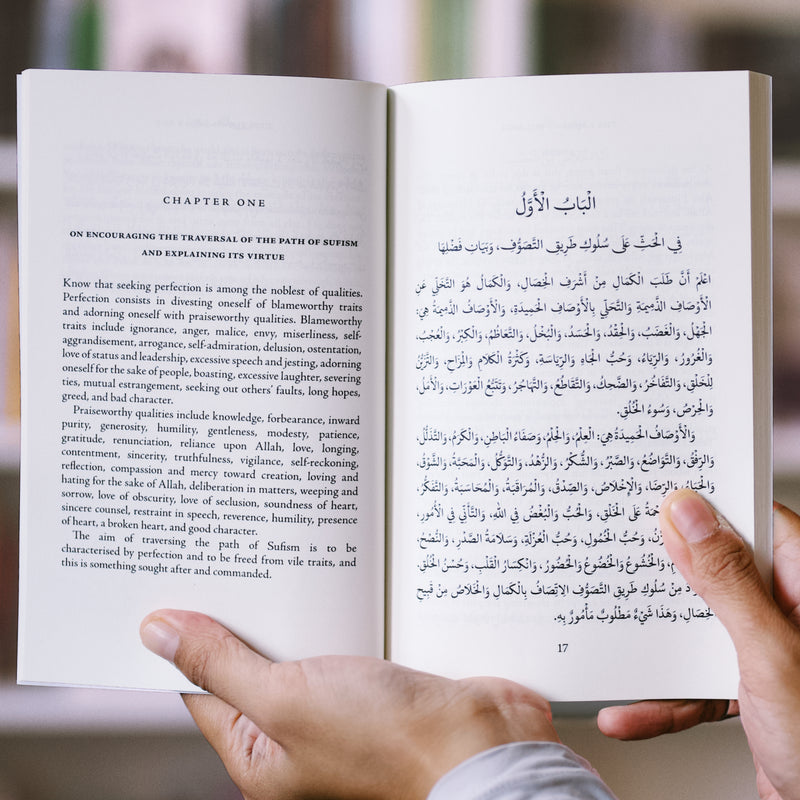 CHAPTER ONE
ON ENCOURAGING THE TRAVERSAL OF THE PATH OF SUFISM
AND EXPLAINING ITS VIRTUE
Know that seeking perfection is among the noblest of qualities.
Perfection consists in divesting oneself of blameworthy traits
and adorning oneself with praiseworthy qualities. Blameworthy
traits include ignorance, anger, malice, envy, miserliness, self-
aggrandisement, arrogance, self-admiration, delusion, ostentation,
love of status and leadership, excessive speech and jesting, adorning
oneself for the sake of people, boasting, excessive laughter, severing
ties, mutual estrangement, seeking out others' faults, long hopes,
greed, and bad character.
Praiseworthy qualities include knowledge, forbearance, inward
purity, generosity, humility, gentleness, modesty, patience,
gratitude, renunciation, reliance upon Allah, love, longing,
contentment, sincerity, truthfulness, vigilance, self-reckoning,
reflection, compassion and mercy toward creation, loving and
hating for the sake of Allah, deliberation in matters, weeping and
sorrow, love of obscurity, love of seclusion, soundness of heart,
sincere counsel, restraint in speech, reverence, humility, presence
of heart, a broken heart, and good character.
The aim of traversing the path of Sufism is to be
characterised by perfection and to be freed from vile traits, and
this is something sought after and commanded.
الْبَابُ الْأَوَّلُ
فِي الْحَثِّ عَلَى سُلُوكِ طَرِيقِ التَّصَوُّفِ، وَبَيَانِ فَضْلِهَا
اعْلَمْ أَنَّ طَلَبَ الْكَمَالِ مِنْ أَشْرَفِ الْخِصَالِ، وَالْكَمَالُ هُوَ التَّخَلِّي عَنِ
الْأَوْصَافِ الذَّمِيمَةِ وَالتَّحَلِّي بِالْأَوْصَافِ الْحَمِيدَةِ، وَالْأَوْصَافُ الذَّمِيمَةُ هِيَ:
الْجَهْلُ، وَالْغَضَبُ، وَالْحِقْدُ، وَالْحَسَدُ، وَالْبُخْلُ، وَالتَّعَاظُمُ، وَالْكِبْرُ، وَالْعُجْبُ،
وَالْغُرُورُ، وَالرِّيَاءُ، وَحُبُّ الْجَاهِ وَالرِّيَاسَةِ، وَكَثْرَةُ الْكَلَامِ وَالْمِزَاحِ، وَالتَّزَيُّنُ
لِلْخَلْقِ، وَالتَّفَاخُرُ، وَالضَّحِكُ، وَالتَّقَاطُعُ، وَالتَّهَاجُرُ، وَتَتَبُّعُ الْعَوْرَاتِ، وَالْأَمَلُ،
وَالْحِرْصُ، وَسُوءُ الْخُلُقِ.
وَالْأَوْصَافُ الْحَمِيدَةُ هِيَ: الْعِلْمُ، وَالْحِلْمُ، وَصَفَاءُ الْبَاطِنِ، وَالْكَرَمُ، وَالتَّذَلُّلُ،
وَالرِّفْقُ، وَالتَّوَاضُعُ، وَالصَّبْرُ، وَالشُّكْرُ، وَالزُّهْدُ، وَالتَّوَكُّلُ، وَالْمَحَبَّةُ، وَالشَّوْقُ،
وَالْحَيَاءُ، وَالرِّضَا، وَالْإِخْلَاصُ، وَالصِّدْقُ، وَالْمُرَاقَبَةُ، وَالْمُحَاسَبَةُ، وَالتَّفَكُّرُ،
عَلَى الْخَلْقِ، وَالْحُبُّ وَالْبُغْضُ فِي اللهِ، وَالتَّأَنِّي فِي الْأُمُورِ،
وَحُبُّ الْخُمُولِ، وَحُبُّ الْعُزْلَةِ، وَسَلَامَةُ الصَّدْرِ، وَالنُّصْحُ،
وَالْخُشُوعُ وَالْخُضُوعُ وَالْحُضُورُ، وَانْكِسَارُ الْقَلْبِ، وَحُسْنُ الْخُلُقِ.
مِنْ سُلُوكِ طَرِيقِ التَّصَوُّفِ الِاتِّصَافُ بِالْكَمَالِ وَالْخَلَاصُ مِنْ قَبِيحِ
الْخِصَالِ، وَهَذَا شَيْءٌ مَطْلُوبٌ مَأْمُورٌ بِهِ.
17